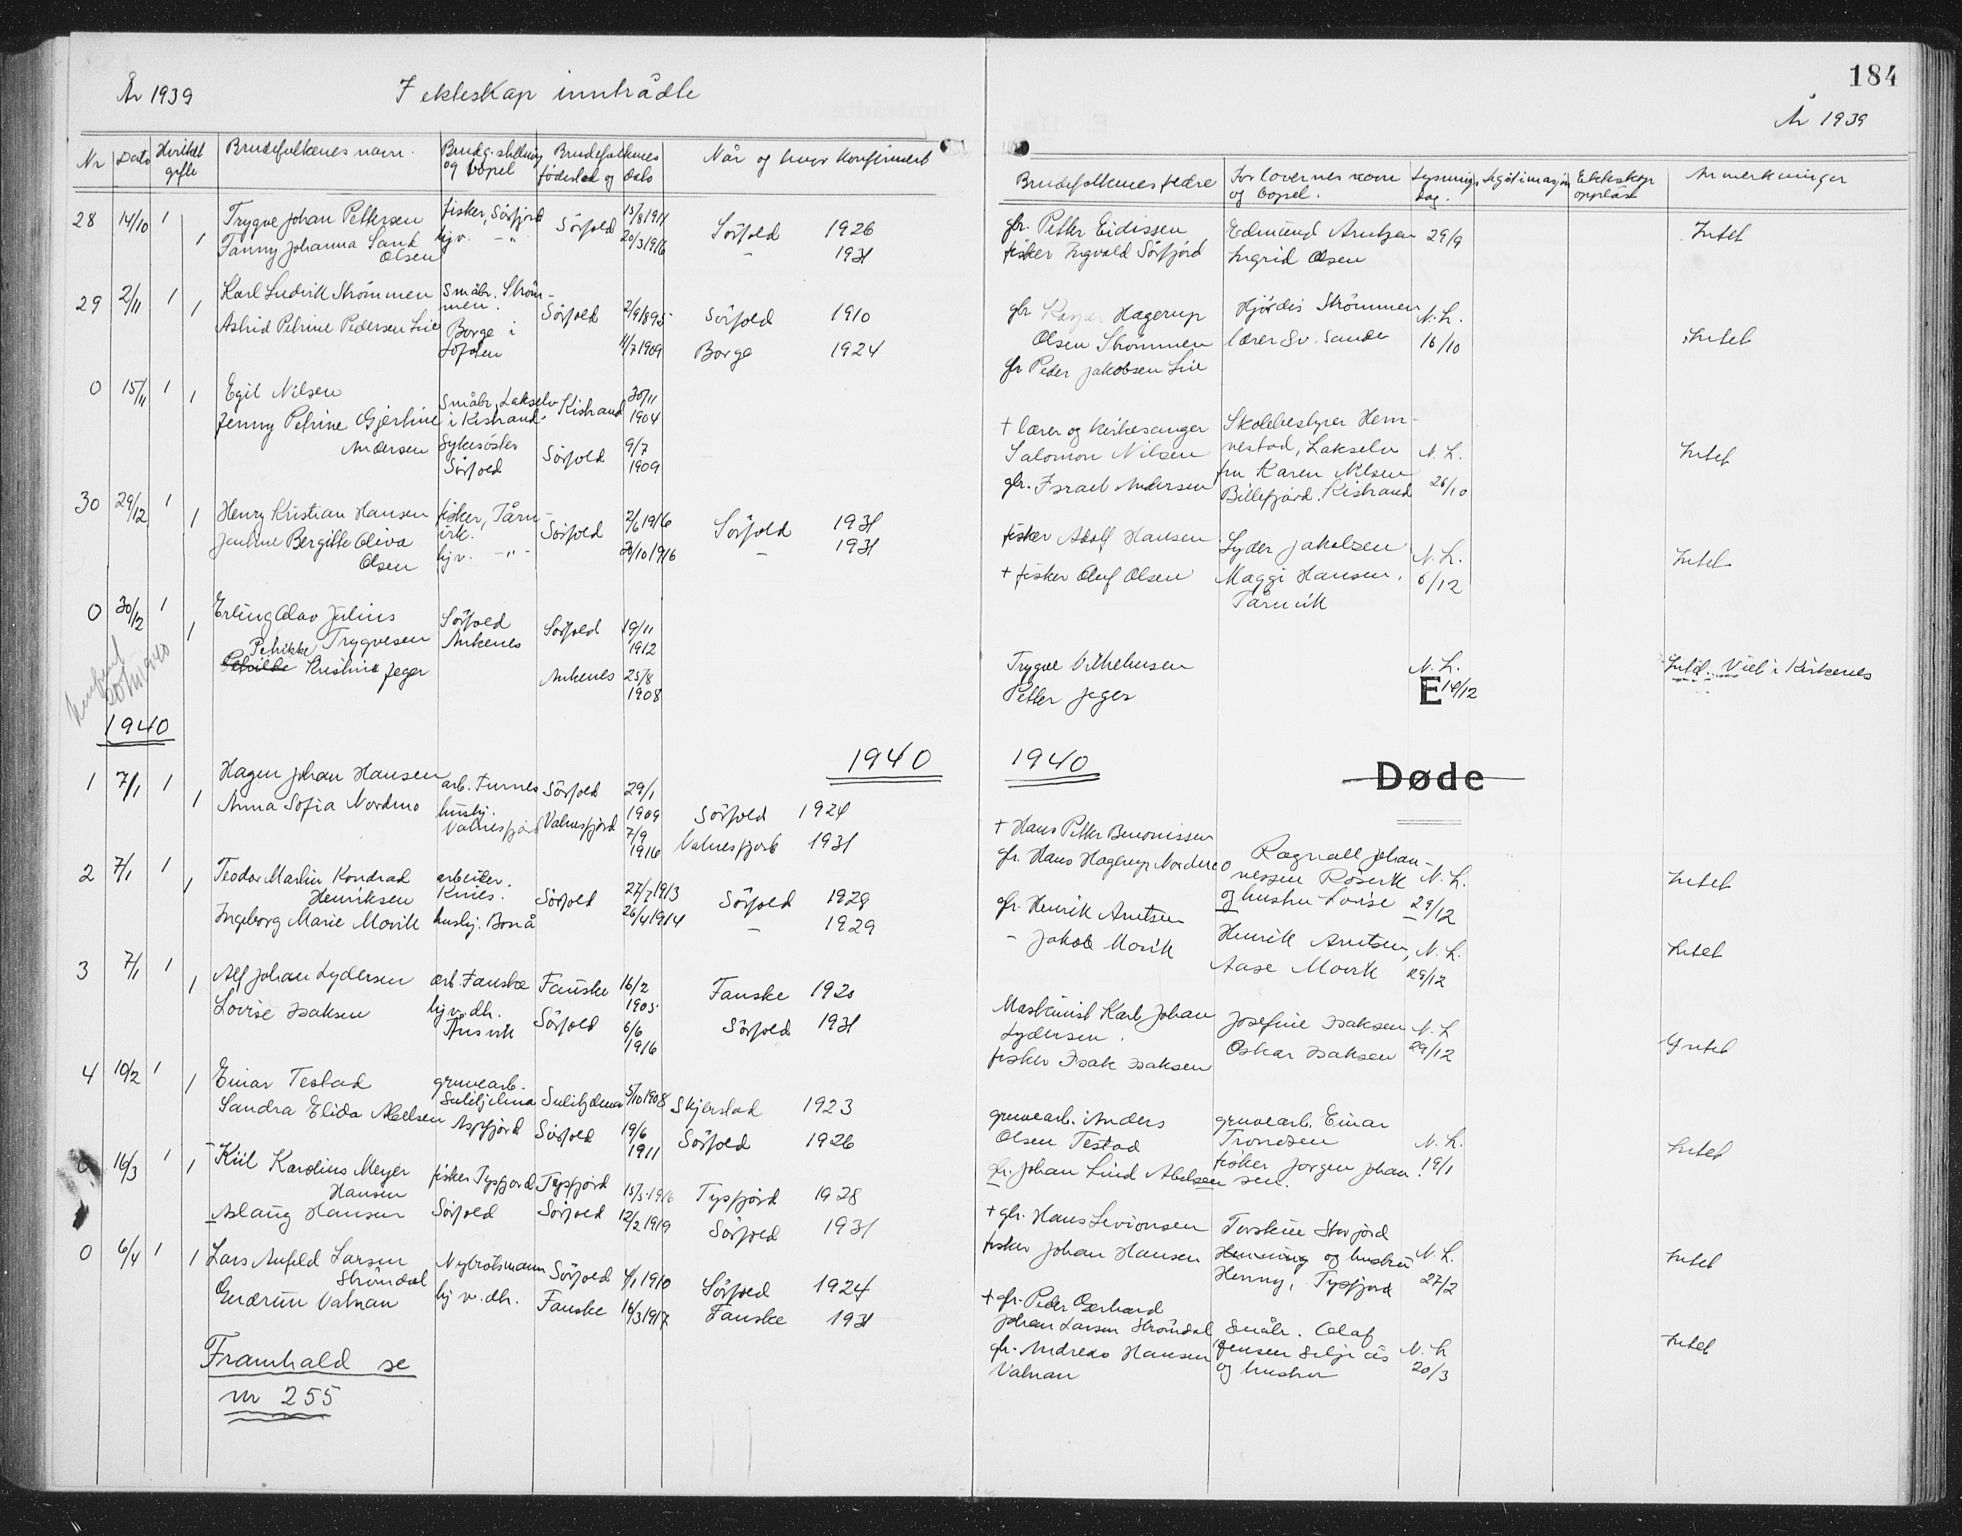 År 1939
I ekteskap inntrådte
Nr Dato Hvilket gifte Brudefolkenes navn. Brudg. stilling og bopel Brudefolkenes fødested og dato Når og hvor konfirmert
28 14/10 1 Trygve Johan Pettersen fisker, Sörfjord Sörfold 15/8 1911 Sörfold 1926
1 Fanny Johanna Sand Olsen hjv. - " - 20/3 1916 - 1931
29 2/11 1 Karl Ludvik Strömmen småbr. Strömmen. Sörfold 2/9 1895 Sörfold 1910
1 Astrid Petrine Pedersen Lie Borge i Lofoten 11/7 1909 Borge 1924
0 15/11 1 Egil Nilsen småbr, Lakselv i Kistrand Kistrand 30/11 1904
1 Jenny Petrine Gjertine Andersen Sykesöster Sörfold Sörfold 9/7 1909
30 29/12 1 Henry Kristian Hansen fisker, Tårnvik. Sörfold 2/6 1916 Sörfold 1931
1 Bergitte Oliva Olsen hjv. - " - 20/10 1916 - 1931
0 30/12 1 Erling Olav Julius Trygvesen Sörfold Ankenes Sörfold 19/11 1912
1 Petrikke Kristine Jeger Ankenes 25/8 1908
1940
1940
1 7/1 1 Hagen Johan Hansen arb. Furnes Sörfold 29/1 1909 Sörfold 1924
1 Anna Sofia Nordmo hushj. Valnesfjord Valnesfjord 7/9 1916 Valnesfjord 1931
2 7/1 1 Teodor Martin Kondrad Henriksen arbeider. Kines. Sörfold 27/7 1913 Sörfold 1929
1 Ingeborg Marie Movik hushj. Bonå 26/4 1914 - 1929
3 7/1 1 Alf Johan Lydersen arb. Fauske Fauske 16/2 1905 Fauske 1920
1 Lovise Isaksen hjv. dh. Ansvik Sörfold 6/6 1916 Sörfold 1931
4 10/2 1 Einar Testad gruvearb. Sulitjelma Sulitjelma 5/10 1908 Skjerstad 1923
1 Sandra Elida Abelsen Aspfjord Sörfold 19/6 1911 Sörfold 1926
16/3 1 Kiil Karolius Meyer Hansen fisker Tysfjord Tysfjord 15/5 1916 Tysfjord 1928
1 Aslaug Hansen Sörfold Sörfold 12/2 1919 Sörfold 1931
0 6/4 1 Lars Anfeld Larsen Ströndal Nybrotsmann Sörfold 4/1 1910 Sörfold 1924
1 Gudrun Valnan hjv. dh. Fauske 16/3 1917 Fauske 1931
Framhald se
nr 255
184
År 1939
Brudefolkenes fedre Forlovernes navn og bopel. Lysningsdag. Legitimasjon Ekteskap oppløst Anmerkninger
gbr. Petter Eidissen Edmund Arntzen 29/9 Intet
fisker Ingvald Sörfjord Ingrid Olsen
gbr Kasper Hagerup Hjördis Strömmen N. L.
Olsen Strömmen lærer Sv. Sande 16/10 Intet
gbr Peder Jakobsen Lie
+ lærer og kirkesanger Skolebestyrer Hem-
Salomon Nilsen nestad, Lakselv N. L. Intet
gbr. Israel Andersen fru Karen Nilsen Billefjord. Kistrand 26/10
fisker Adolf Hansen Lyder Jakobsen N. L. Intet
+ fisker Oluf Olsen Maggi Hansen, Tårnvik 6/12
Trygve Vilhelmsen N. L. Intet. Viet i Kirkenes
Petter Jeger E 19/12
1940
Døde
+ Hans Petter Benonissen
gbr. Hans Hagerup Nordmo Ragnvald Johannessen Rösvik N. L. Intet
og hustru Lovise 29/12
gbr. Henrik Arntsen Henrik Arntsen, N. L. Intet
- Jakob Movik Aase Movik 29/12
Maskinist Karl Johan Lydersen. Josefine Isaksen N. L Intet
fisker Isak Isaksen Oskar Isaksen 29/12
gruvearb. Anders Olsen Testad gruvearb. Einar Trondsen N. L. Intet
gbr. Johan Lind Abelsen fisker Jörgen Johansen. 19/1
+ gbr. Hans Levionsen Torskine Storjord
fisker Johan Hansen Henning og hustru N. L. Intet
Henny, Tysfjord 27/2
+ gbr. Peder Gerhard
Johan Larsen Ströndal Småbr. Olaf N. L Intet
gbr. Andreas Hansen Jensen Seljeås 20/3
Valnan og hustru